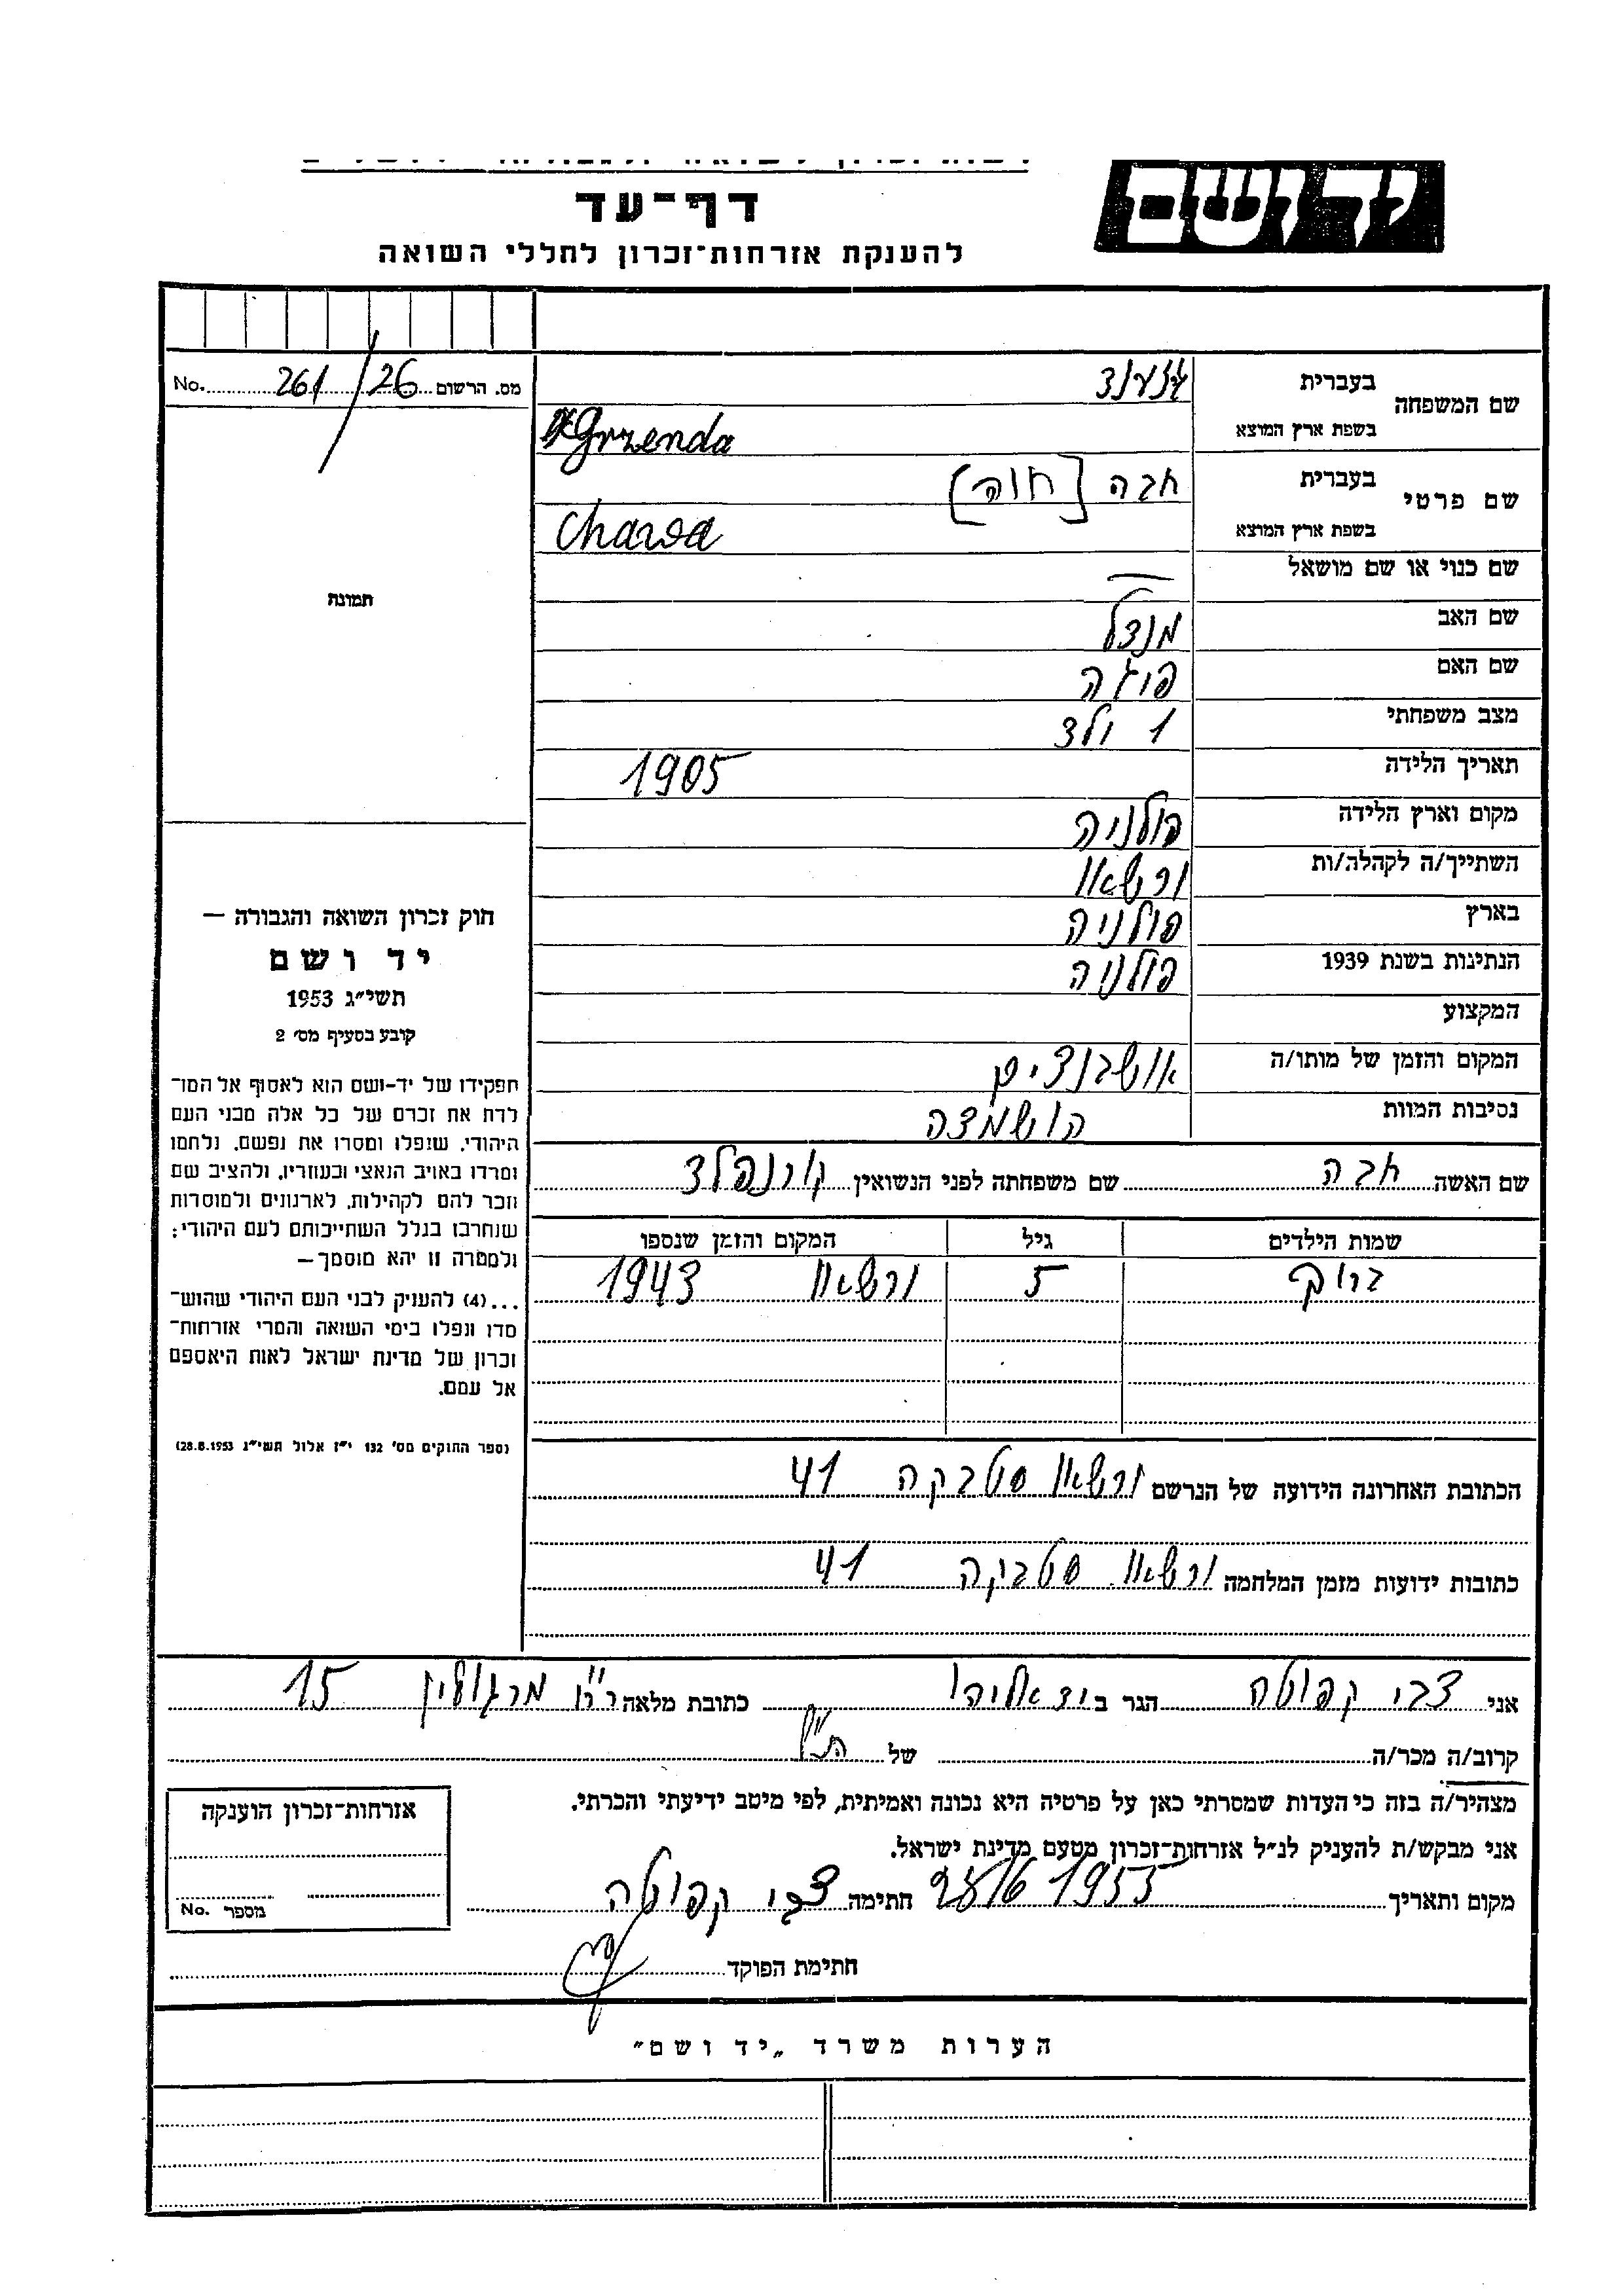 יד ושם
דף־עד
להענקת אזרחות־זכרון לחללי השואה
מס. הרשום 26/261 No.
שם המשפחה
בעברית
בשפת ארץ המוצא Grzenda
שם פרטי
בעברית חבה [חוה]
בשפת ארץ המוצא Chawa
תמונה
שם כנוי או שם מושאל —
שם האב מנדל
שם האם פיגה
מצב משפחתי 1 ולד
תאריך הלידה 1905
מקום וארץ הלידה פולניה
השתייך/ה לקהלה/ות ורשאו
בארץ פולניה
הנתינות בשנת 1939 פולניה
המקצוע
המקום והזמן של מותו/ה אושבנצים
נסיבות המוות הושמדה
שם האשה חבה שם משפחתה לפני הנשואין קורנפלד
שמות הילדים גיל המקום והזמן שנספו
ברוך 5 ורשאו 1943
חוק זכרון השואה והגבורה —
יד ושם
תשי״ג 1953
קובע בסעיף מס׳ 2
תפקידו של יד-ושם הוא לאסוף אל המו־
לדת את זכרם של כל אלה מבני העם
היהודי, שנפלו ומסרו את נפשם, נלחמו
ומרדו באויב הנאצי ובעוזריו, ולהציב שם
וזכר להם לקהילות, לארגונים ולמוסדות
שנחרבו בגלל השתייכותם לעם היהודי:
ולמטרה זו יהא מוסמך —
...(4) להעניק לבני העם היהודי שהוש־
מדו ונפלו בימי השואה והמרי אזרחות־
זכרון של מדינת ישראל לאות היאספם
אל עמם.
(ספר החוקים מס׳ 132 י״ז אלול תשי״ג 28.8.1953)
הכתובת האחרונה הידועה של הנרשם ורשאו סטבקה 41
כתובות ידועות מזמן המלחמה ורשאו סטבקה 41
אני צבי קפוטה הגר ב יד אליהו כתובת מלאה רח׳ מרגולין 15
קרוב/ה מכר/ה של הנ״ל
מצהיר/ה בזה כי העדות שמסרתי כאן על פרטיה היא נכונה ואמיתית, לפי מיטב ידיעתי והכרתי.
אני מבקש/ת להעניק לנ״ל אזרחות־זכרון מטעם מדינת ישראל.
מקום ותאריך 1955 חתימה צבי קפוטה
חתימת הפוקד
אזרחות־זכרון הוענקה
מספר No.
הערות משרד „יד ושם״